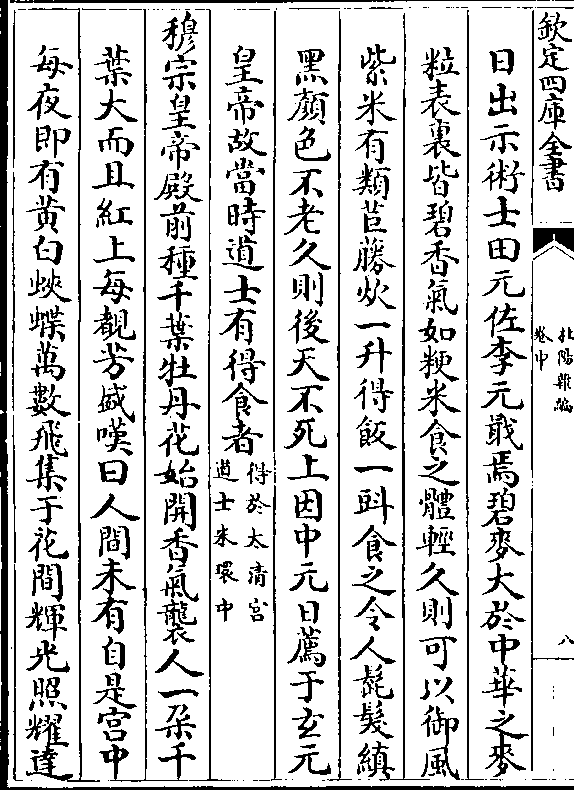 欽定四庫全書
杜陽雜編
卷中
八
日出示術士田元佐李元戢焉碧麥大於中華之麥
粒表裏皆碧香氣如粳米食之體輕久則可以御風
紫米有類苣藤炊一升得飯一㪷食之令人髭髮縝
黑顔色不老久則後天不死上因中元日薦于𤣥元
皇帝故當時道士有得食者
得於太清宮
道士米環中
穆宗皇帝殿前種千葉牡丹花始開香氣襲人一朶千
葉大而且紅上每覩芳盛嘆曰人間未有自是宮中
每夜即有黄白蛺蝶萬數飛集于花間輝光照耀達